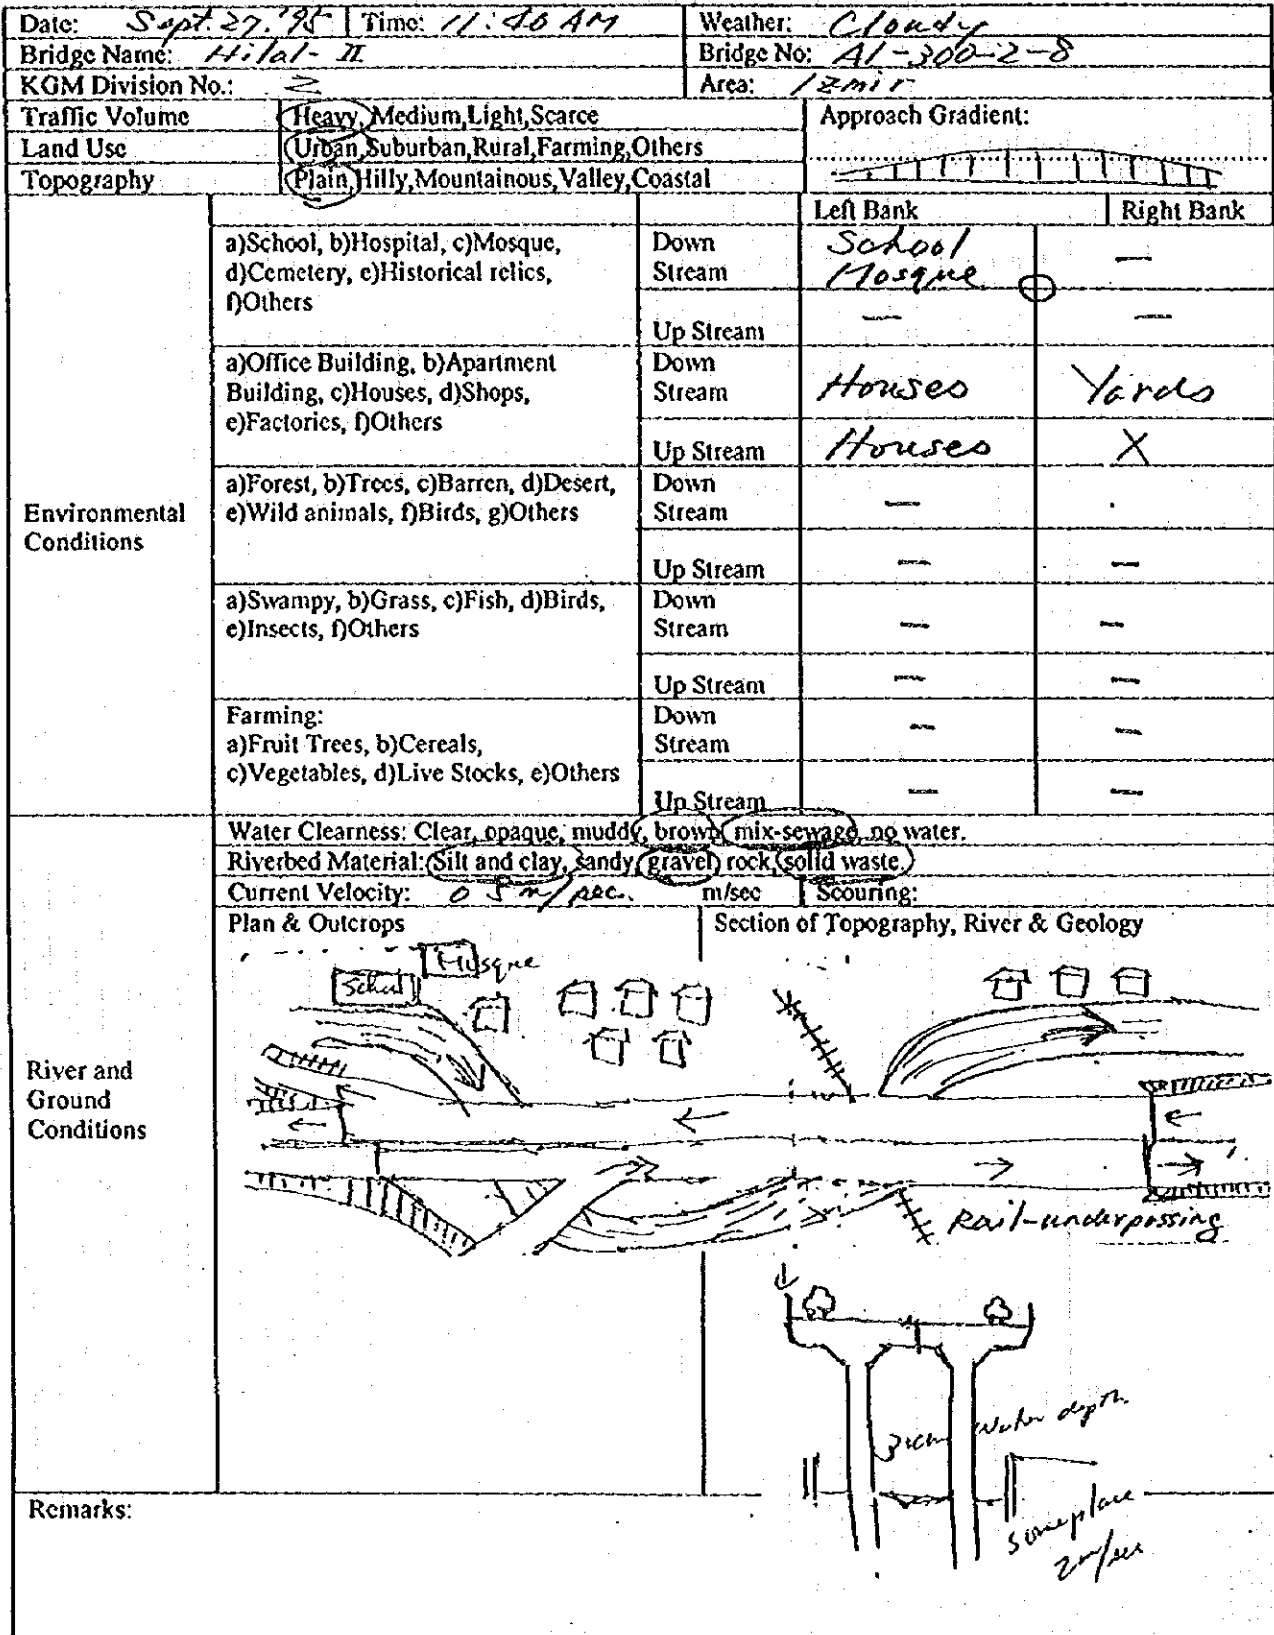 Date: Sept. 27. '95 Time: 11:40 AM Weather: Cloudy
Bridge Name: Hilal-II Bridge No: A1-300-2-8
KGM Division No.: 2 Area: Izmir
Traffic Volume Heavy, Medium,Light,Scarce Approach Gradient:
Land Use Urban,Suburban,Rural,Farming,Others
Topography Plain,Hilly,Mountainous,Valley,Coastal
Left Bank Right Bank
Environmental
Conditions
a)School, b)Hospital, c)Mosque, Down School —
d)Cemetery, e)Historical relics, Stream Mosque
f)Others
Up Stream — —
a)Office Building, b)Apartment Down
Building, c)Houses, d)Shops, Stream Houses Yards
e)Factories, f)Others
Up Stream Houses X
a)Forest, b)Trees, c)Barren, d)Desert, Down
e)Wild animals, f)Birds, g)Others Stream — .
Up Stream — —
a)Swampy, b)Grass, c)Fish, d)Birds, Down
e)Insects, f)Others Stream — —
Up Stream — —
Farming: Down
a)Fruit Trees, b)Cereals, Stream — —
c)Vegetables, d)Live Stocks, e)Others
Up Stream — —
River and
Ground
Conditions
Water Clearness: Clear, opaque, muddy, brown, mix-sewage, no water.
Riverbed Material: Silt and clay, sandy, gravel, rock, solid waste.
Current Velocity: 0.5 m/sec. m/sec Scouring:
Plan & Outcrops Section of Topography, River & Geology
Mosque
School
Rail-underpassing
Water depth
someplace
2m/sec
Remarks: